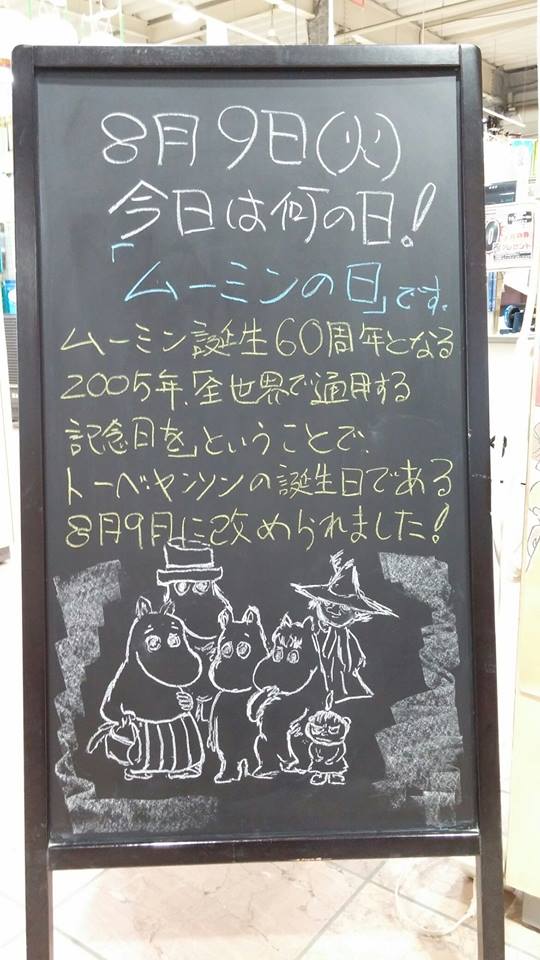 8月9日(火)
今日は何の日!
「ムーミンの日」です.
ムーミン誕生60周年となる
2005年、「全世界で通用する
記念日を」ということで、
トーベ・ヤンソンの誕生日である
8月9月に改められました!
プレゼント